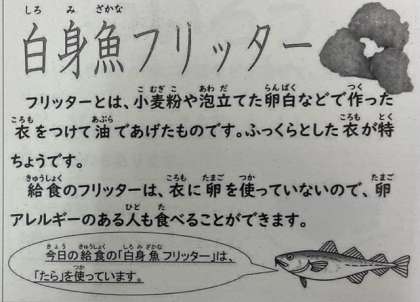 白身魚フリッター
フリッターとは、小麦粉や泡立てた卵白などで作った
衣をつけて油であげたものです。ふっくらとした衣が特
ちょうです。
給食のフリッターは、衣に卵を使っていないので、卵
アレルギーのある人も食べることができます。
今日の給食の「白身魚フリッター」は、
「たら」を使っています。